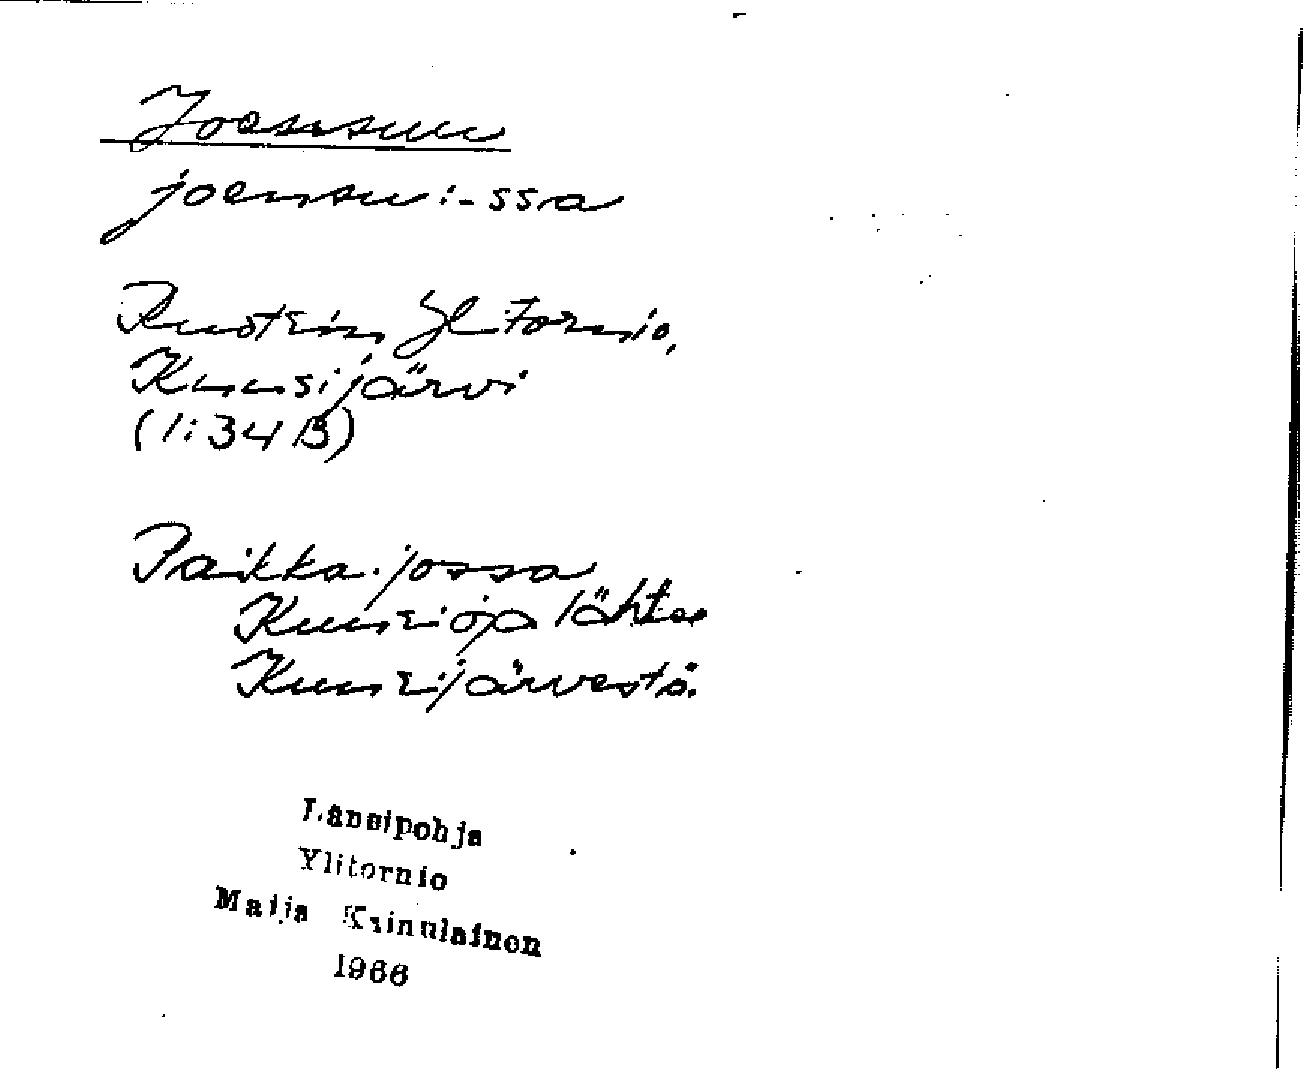 Joensuu
joensu:-ssa
Ruotsin Ylitornio,
Kuusijärvi
(1:34 B)
Paikka. jossa
Kuusioja lähtee
Kuusijärvestä.
Länsipohja
Ylitornio
Maija Kainulainen
1966